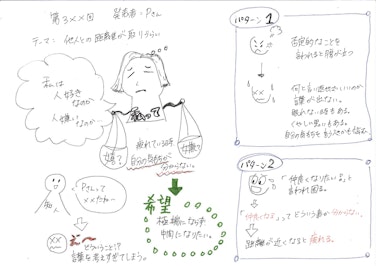 第3××回 発表者：Pさん
テーマ：他人との距離感が取りづらい
私は
人好き
なのか
人嫌い
なのか…
疲れている時
自分の気持ちが
分からない。
希望
極端にならず
中間になりたい。
知人
Pさんって
××だねー
えー
どういうこと!?
言葉を考えすぎてしまう。
パターン1
否定的なことを
言われると腹が立つ
何と言い返せばいいのか
言葉が出ない。
眠れない時もある。
くやしい思いもある。
パターン2
「仲良くなりたい」と
言われ困る。
「仲良くなる」ってどういう事か分からない。
距離が近くなると疲れる。